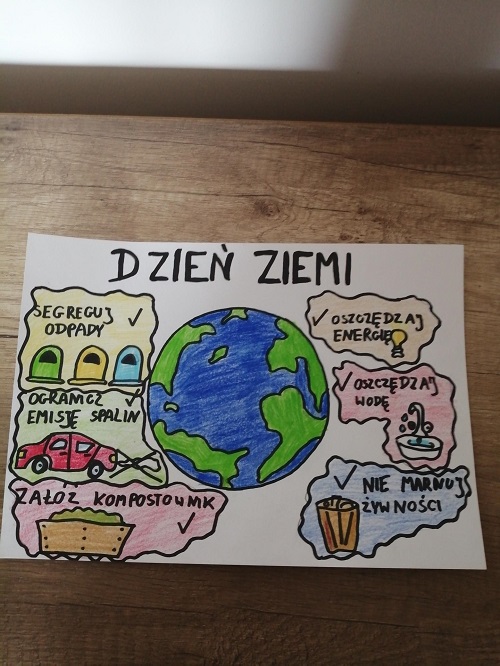 DZIEŃ ZIEMI
SEGREGUJ
ODPADY
OGRANICZ
EMISJĘ SPALIN
ZAŁÓŻ KOMPOSTOWNIK
OSZCZĘDZAJ
ENERGIĘ
OSZCZĘDZAJ
WODĘ
NIE MARNUJ
ŻYWNOŚCI